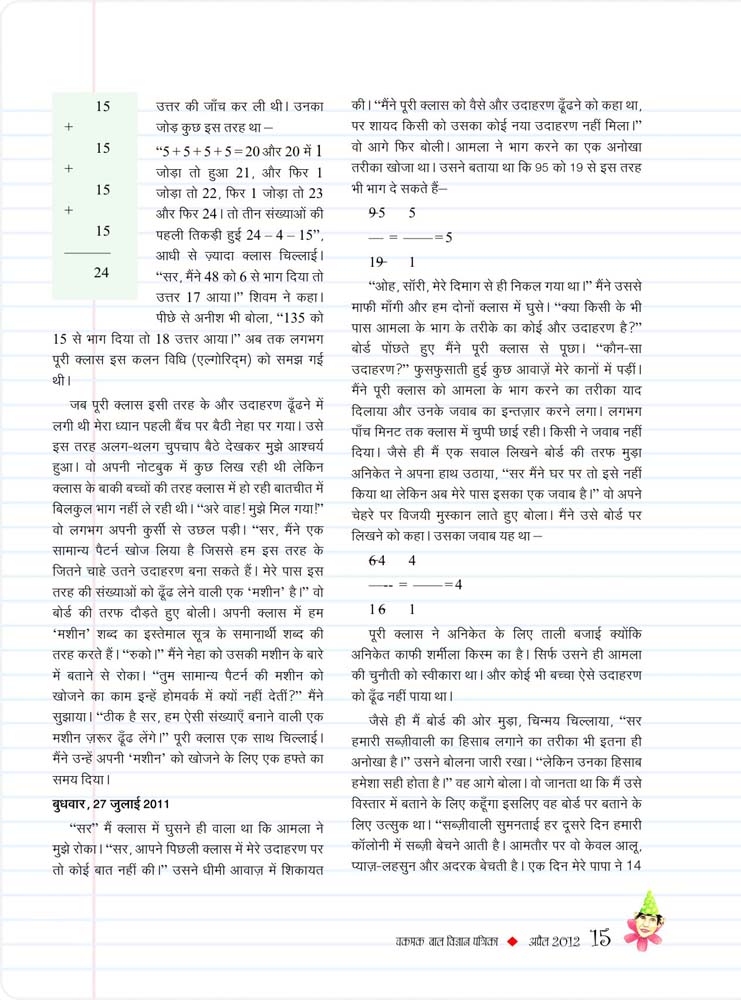 15
+
15
+
15
+
15
24
उत्तर की जाँच कर ली थी। उनका
जोड़ कुछ इस तरह था –
“5 + 5 + 5 + 5 = 20 और 20 में 1
जोड़ा तो हुआ 21, और फिर 1
जोड़ा तो 22, फिर 1 जोड़ा तो 23
और फिर 24। तो तीन संख्याओं की
पहली तिकड़ी हुई 24 – 4 – 15”,
आधी से ज़्यादा क्लास चिल्लाई।
“सर, मैंने 48 को 6 से भाग दिया तो
उत्तर 17 आया।” शिवम ने कहा।
पीछे से अनीश भी बोला, “135 को
15 से भाग दिया तो 18 उत्तर आया।” अब तक लगभग
पूरी क्लास इस कलन विधि (एल्गोरिद्म) को समझ गई
थी।
जब पूरी क्लास इसी तरह के और उदाहरण ढूँढने में
लगी थी मेरा ध्यान पहली बैंच पर बैठी नेहा पर गया। उसे
इस तरह अलग-थलग चुपचाप बैठे देखकर मुझे आश्चर्य
हुआ। वो अपनी नोटबुक में कुछ लिख रही थी लेकिन
क्लास के बाकी बच्चों की तरह क्लास में हो रही बातचीत में
बिलकुल भाग नहीं ले रही थी। “अरे वाह! मुझे मिल गया!”
वो लगभग अपनी कुर्सी से उछल पड़ी। “सर, मैंने एक
सामान्य पैटर्न खोज लिया है जिससे हम इस तरह के
जितने चाहे उतने उदाहरण बना सकते हैं। मेरे पास इस
तरह की संख्याओं को ढूँढ लेने वाली एक ‘मशीन’ है।” वो
बोर्ड की तरफ दौड़ते हुए बोली। अपनी क्लास में हम
‘मशीन’ शब्द का इस्तेमाल सूत्र के समानार्थी शब्द की
तरह करते हैं। “रुको।” मैंने नेहा को उसकी मशीन के बारे
में बताने से रोका। “तुम सामान्य पैटर्न की मशीन को
खोजने का काम इन्हें होमवर्क में क्यों नहीं देतीं?” मैंने
सुझाया। “ठीक है सर, हम ऐसी संख्याएँ बनाने वाली एक
मशीन ज़रूर ढूँढ लेंगे।” पूरी क्लास एक साथ चिल्लाई।
मैंने उन्हें अपनी ‘मशीन’ को खोजने के लिए एक हफ्ते का
समय दिया।
बुधवार, 27 जुलाई 2011
“सर” मैं क्लास में घुसने ही वाला था कि आमला ने
मुझे रोका। “सर, आपने पिछली क्लास में मेरे उदाहरण पर
तो कोई बात नहीं की।” उसने धीमी आवाज़ में शिकायत
की। “मैंने पूरी क्लास को वैसे और उदाहरण ढूँढने को कहा था,
पर शायद किसी को उसका कोई नया उदाहरण नहीं मिला।”
वो आगे फिर बोली। आमला ने भाग करने का एक अनोखा
तरीका खोजा था। उसने बताया था कि 95 को 19 से इस तरह
भी भाग दे सकते हैं–
95 5
— = —— = 5
19 1
“ओह, सॉरी, मेरे दिमाग से ही निकल गया था।” मैंने उससे
माफी माँगी और हम दोनों क्लास में घुसे। “क्या किसी के भी
पास आमला के भाग के तरीके का कोई और उदाहरण है?”
बोर्ड पोंछते हुए मैंने पूरी क्लास से पूछा। “कौन-सा
उदाहरण?” फुसफुसाती हुई कुछ आवाज़ें मेरे कानों में पड़ीं।
मैंने पूरी क्लास को आमला के भाग करने का तरीका याद
दिलाया और उनके जवाब का इन्तज़ार करने लगा। लगभग
पाँच मिनट तक क्लास में चुप्पी छाई रही। किसी ने जवाब नहीं
दिया। जैसे ही मैं एक सवाल लिखने बोर्ड की तरफ मुड़ा
अनिकेत ने अपना हाथ उठाया, “सर मैंने घर पर तो इसे नहीं
किया था लेकिन अब मेरे पास इसका एक जवाब है।” वो अपने
चेहरे पर विजयी मुस्कान लाते हुए बोला। मैंने उसे बोर्ड पर
लिखने को कहा। उसका जवाब यह था –
64 4
—-- = —— = 4
16 1
पूरी क्लास ने अनिकेत के लिए ताली बजाई क्योंकि
अनिकेत काफी शर्मीला किस्म का है। सिर्फ उसने ही आमला
की चुनौती को स्वीकारा था। और कोई भी बच्चा ऐसे उदाहरण
को ढूँढ नहीं पाया था।
जैसे ही मैं बोर्ड की ओर मुड़ा, चिन्मय चिल्लाया, “सर
हमारी सब्ज़ीवाली का हिसाब लगाने का तरीका भी इतना ही
अनोखा है।” उसने बोलना जारी रखा। “लेकिन उनका हिसाब
हमेशा सही होता है।” वह आगे बोला। वो जानता था कि मैं उसे
विस्तार में बताने के लिए कहूँगा इसलिए वह बोर्ड पर बताने के
लिए उत्सुक था। “सब्ज़ीवाली सुमनताई हर दूसरे दिन हमारी
कॉलोनी में सब्ज़ी बेचने आती है। आमतौर पर वो केवल आलू,
प्याज़-लहसुन और अदरक बेचती है। एक दिन मेरे पापा ने 14
चकमक बाल विज्ञान पत्रिका ◆ अप्रैल 2012 15